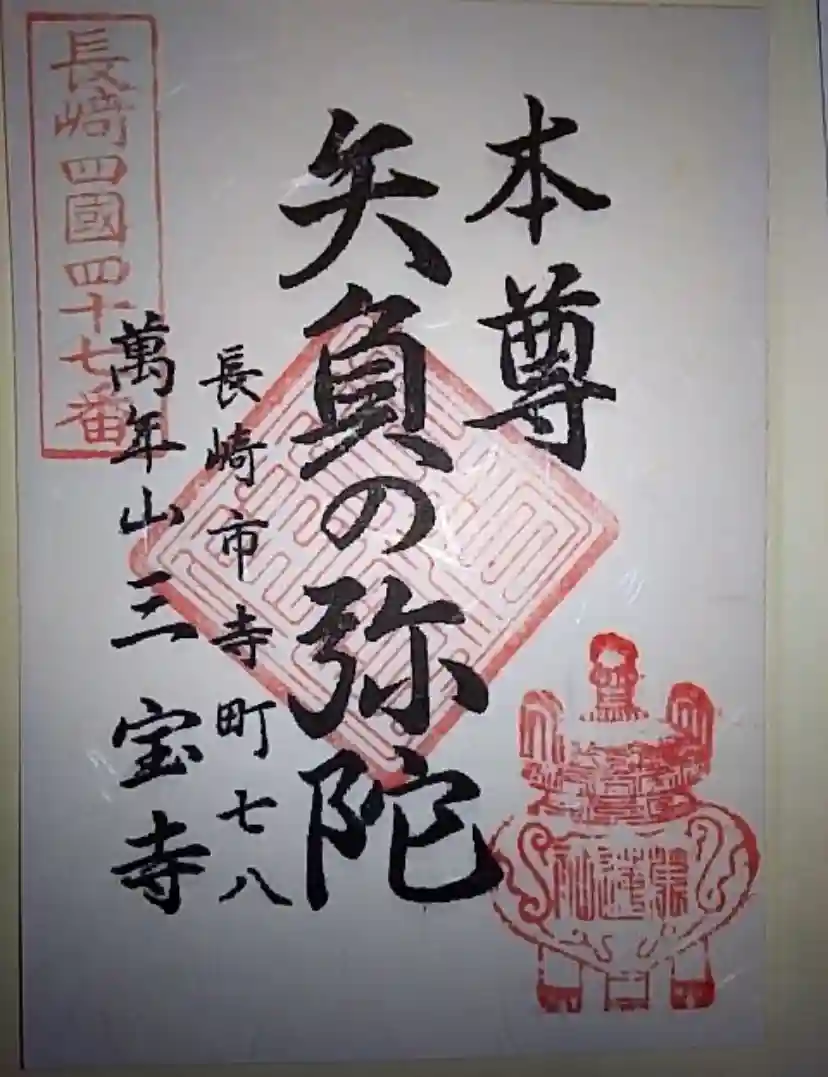 本尊
矢負の弥陀
長崎市寺町七八
萬年山三宝寺
長﨑四國四十七番